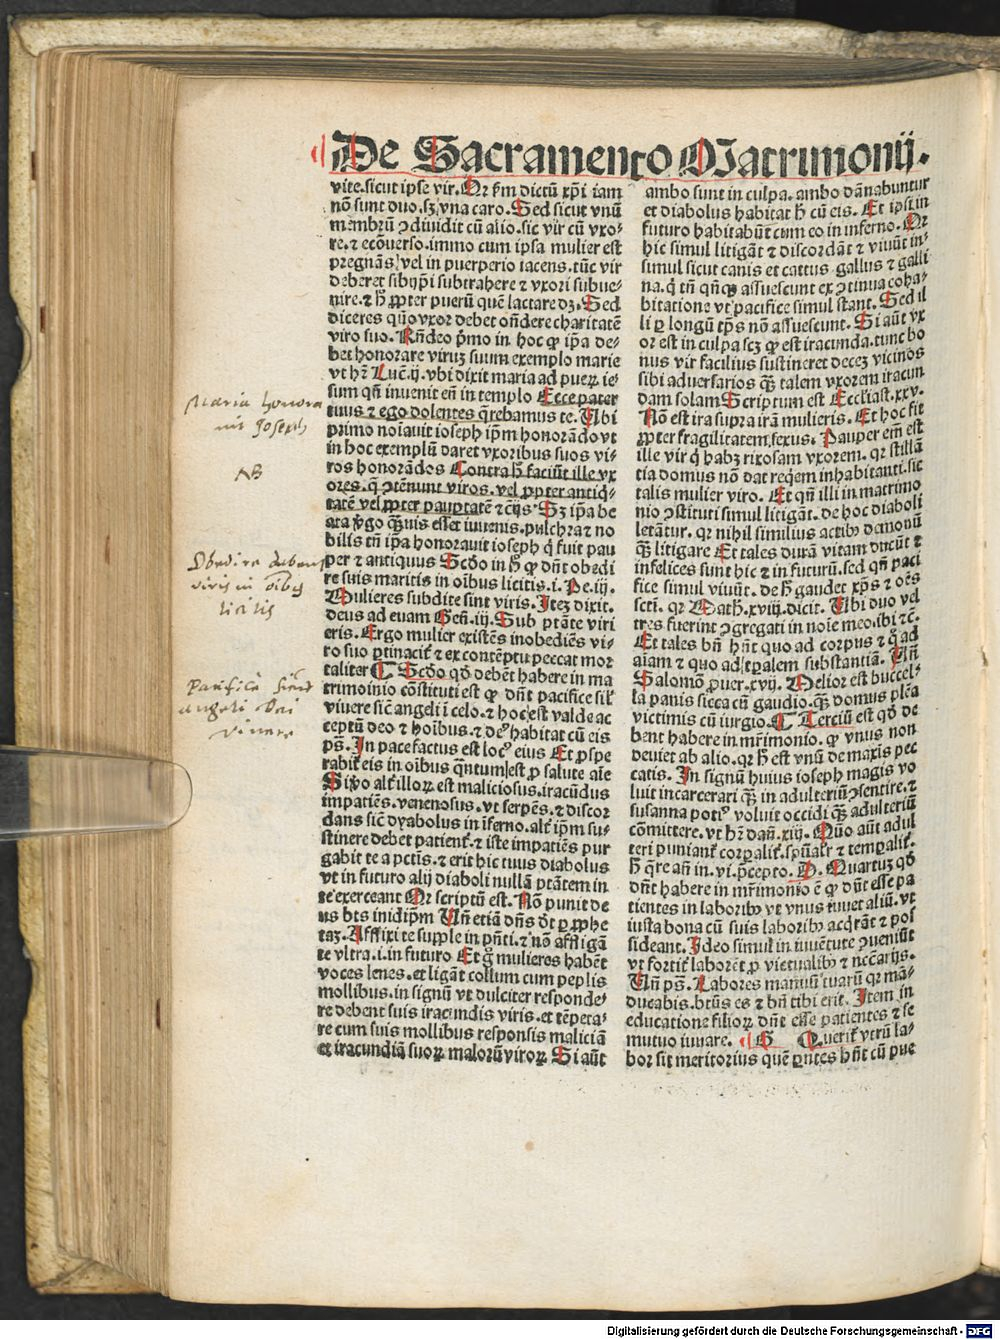 De Sacramento Matrimonij.
vite. sicut ipse vir. Qr ẜm dictū xp̄i iam
nō sunt duo. sꝫ vna caro. Sed sicut vnū
membrū ↄdiuidit cū alio. sic vir cū vxo⸗
re. ⁊ ecōuerso. immo cum ipsa mulier est
pregnās vel in puerperio iacens. tūc vir
deberet sibijp̄i subtrahere ⁊ vxori subue⸗
nire. ⁊ h̄ ꝓpter puerū quē lactare dꝫ. Sed
diceres qūo vxor debet ōndere charitatē
viro suo. Rn̄deo p̄mo in hoc ꝙ ip̄a de⸗
bet honorare virum suum exemplo marie
vt hꝫ Luc̄. ij. vbi dixit maria ad pueꝝ ie⸗
sum qn̄ inuenit eū in templo Ecce pater
tuus ⁊ ego dolentes q̄rebamus te. Ubi
primo noīauit ioseph ip̄m honorādo vt
in hoc exemplū daret vxoribus suos vi⸗
ros honorādos Contra h̄ faciūt ille vx
ores. q̄ ↄtēnunt viros. vel ꝓpter antiq̄⸗
tatē vel ꝓpter pauꝑtatē ⁊c̄
Sꝫ ip̄a be
ata v̄go q̄ꝫuis esset iuuenis. pulchra ⁊ no
bilis tn̄ ip̄a honorauit ioseph q̄ fuit pau
per ⁊ antiquus Scd̄o in h̄ ꝙ dn̄t obedi
re suis maritis in oībus licitis. i. Pe. iij.
Mulieres subdite sint viris. Itē dixit.
deus ad euam Gen̄. iij. Sub ptāte viri
eris. Ergo mulier existēs inobediēs vi⸗
ro suo ꝑtinacit̄ ⁊ ex contēptu peccat mor
taliter C Scd̄o qd̄ debēt habere in ma
trimonio cōstituti est ꝙ dn̄t pacifice sil̄
viuere sic̄ angeli ī celo. ⁊ hoc est valde ac
ceptū deo ⁊ hoībus. ⁊ deꝰ habitat cū eis
ps̄. In pace factus est locꝰ eius Et ꝓspe
rabit̄ eis in oībus q̄ntum est ꝓ salute aīe
Si v̊o alt̄ illoꝝ est maliciosus. iracūdus
impatiēs. venenosus. vt serpēs. ⁊ discor
dans sic̄ dyabolus in īferno. alt̄ ip̄m su⸗
stinere debet patient̄. ⁊ iste impatiēs pur
gabit te a pctīs. ⁊ erit hic tuus diabolus
vt in futuro alij diaboli nullā ptātem in
te exerceant Qr scriptū est. Nō punit de
us bis in idip̄m Un̄ etiā dn̄s dt̄ ꝑ ꝓphe
tam. Afflixi te supple in pn̄ti. ⁊ nō affligā
te vltra. i. in futuro Et q̄ mulieres habēt
voces lenes. et ligāt collum cum peplis
mollibus. in signū vt dulciter responde⸗
re debent suis iracundis viris. et tēpera⸗
re cum suis mollibus responsis maliciā
et iracundiā suoꝝ maloꝝ viroꝝ Si aūt
ambo sunt in culpa. ambo dānabuntur
et diabolus habitat h̄ cū eis. Et ipsi in
futuro habitabūt cum eo in inferno. Qr
hic simul litigāt ⁊ discordāt ⁊ viuūt in⸗
simul sicut canis et cattus gallus ⁊ galli
na. q̄ tn̄ qn̄qꝫ assuescunt ex ↄtinua coha⸗
bitatione vt pacifice simul stant. Sed il
li ꝑ longū tp̄s nō assuescunt. Si aūt vx
or est in culpa scꝫ ꝙ est iracunda. tunc bo
nus vir facilius sustineret decem vicinos
sibi aduersarios q̄ꝫ talem vxorem iracun
dam solam Scriptum est Eccliast. xxv.
Nō est ira supra irā mulieris. Et hoc fit
ꝓpter fragilitatem sexus. Pauper em̄ est
ille vir q̄ habꝫ rixosam vxorem. qr stillā
tia domus nō dat reqem inhabitanti. sic
talis mulier viro. Et qn̄ illi in matrimo
nio ↄstituti simul litigāt. de hoc diaboli
letātur. qr nihil similius actibꝰ demonū
q̄ꝫ litigare Et tales durā vitam ducūt ⁊
infelices sunt hic ⁊ in futurū. sed qn̄ paci
fice simul viuūt. de h̄ gaudet xp̄s ⁊ oēs
sctī. qr Math. xviij. dicit. Ubi duo vel
tres fuerint ↄgregati in noīe meo. ibi ⁊c̄.
Et tales bn̄ hn̄t quo ad corpus ⁊ q̊ ad
aīam ⁊ quo ad tꝑalem substantiā. Un̄
Salomō ꝓuer. xvij. Melior est buccel⸗
la panis sicca cū gaudio. q̄ꝫ domus plēa
victimis cū iurgio. C Terciū est qd̄ de
bent habere in mr̄imonio. ꝙ vnus non
deuiet ab alio. qr h̄ est vnū de maxīs pec
catis. In signū huius ioseph magis vo
luit incarcerari q̄ꝫ in adulteriū ↄsentire. ⁊
susanna potiꝰ voluit occidi q̄ꝫ adulteriū
cōmittere. vt hꝫ dan̄. xiij. Qūo aūt adul
teri puniant̄ corꝑalit̄. spūalr̄ ⁊ temꝑalit̄.
h̄ q̄re an̄ in. vi. p̄cepto. D. Quartum qd̄
dn̄t habere in mr̄imonio ē ꝙ dn̄t esse pa
tientes in laboribꝰ vt vnus iuuet aliū. vt
iusta bona cū suis laboribꝰ acq̄rāt ⁊ pos
sideant. Ideo simul in iuuētute ↄueniūt
vt fortit̄ laborēt ꝓ victualibꝰ ⁊ nccārijs.
Un̄ ps̄. Labores manuū tuarū qr mā⸗
ducabis. btūs es ⁊ bn̄ tibi erit. Item in
educatione filioꝝ dn̄t esse patientes ⁊ se
mutuo iuuare. G Querit̄ vtrū la⸗
bor sit meritorius quē ꝑntes hn̄t cū pue
Maria honora
uit Joseph
NB
Obedire debent
viris in oībꝰ
licitis
Pacificè sicut
angeli Dei
vivere
Digitalisierung gefördert durch die Deutsche Forschungsgemeinschaft - DFG